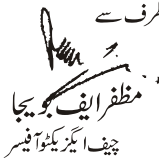 طرف سے
مظفر ایف ویجا
چیف ایگزیکٹو آفیسر